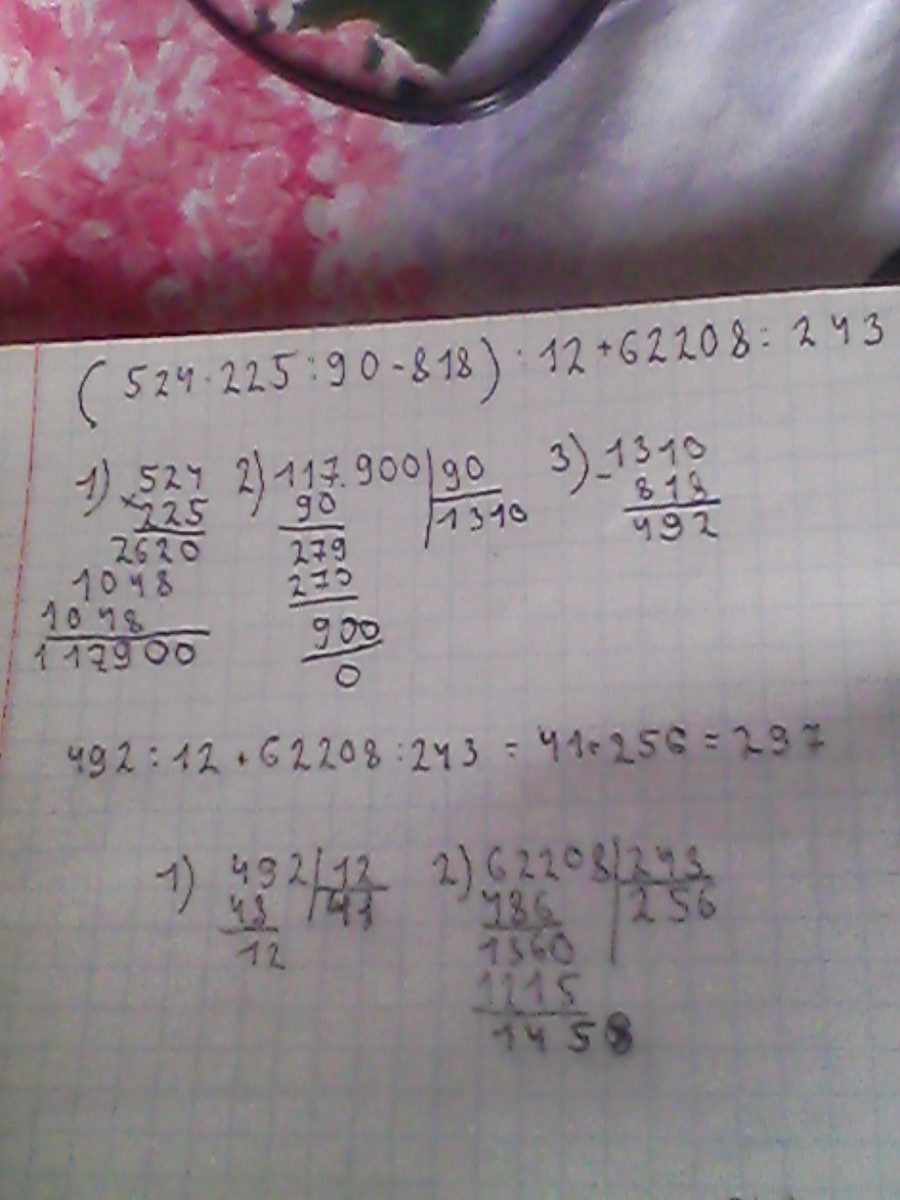 (524·225:90-818):12+62208:243
1) 524 2) 117.900|90 3) -1310
×225 90 1310 818
2620 279 492
1048 270
1048 900
117900 0
492:12+62208:243=41+256=297
1) 492|12 2) 62208|243
48 41 486 256
12 1360
1215
1458